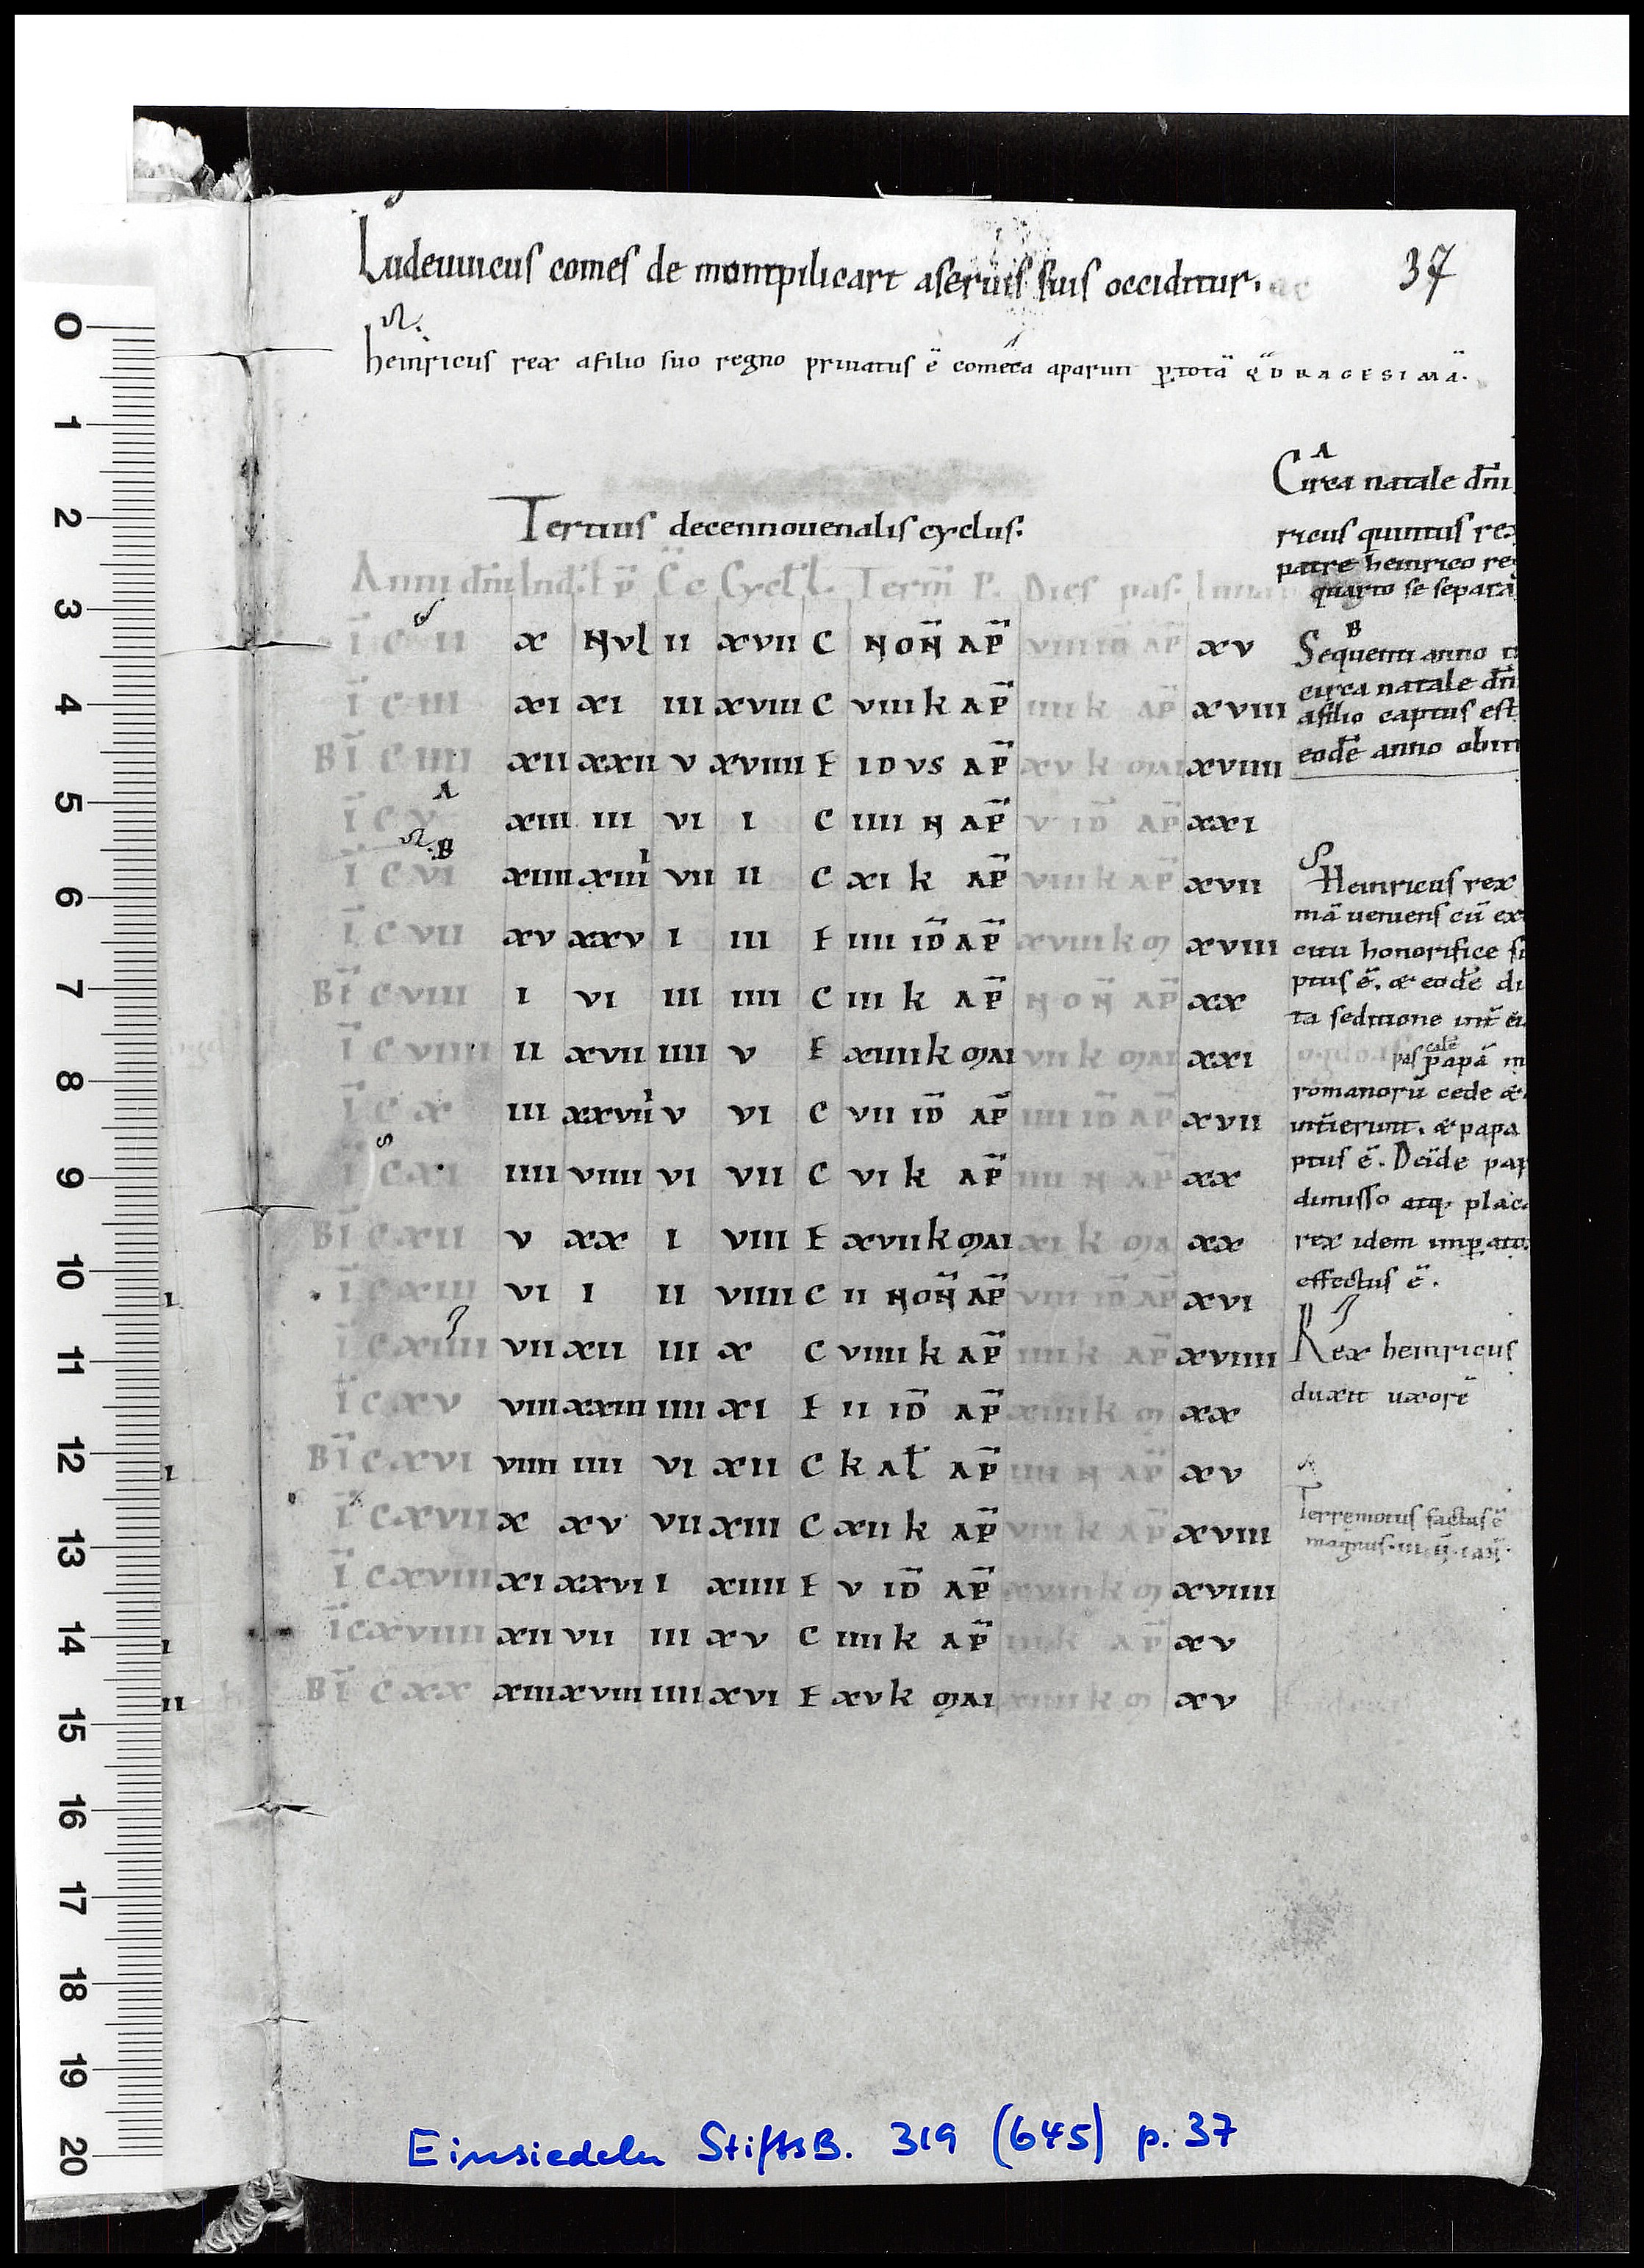 Ludeuuicus comes de montpilicart aseruis suis occiditur.
37
heinricus rex afilio suo regno priuatus ē cometa aparuit p totā QUDRAGESIMĀ.
Tertius decennouenalis cyclus.
Anni dn̄i Ind. Ep̄ C̄c Cycl. L. Term̄ P. Dies pas. Luna
Ī C II X NVL II XVII C NON̄ AP̄ VIII ID̄ AP̄ XV
Ī C III XI XI III XVIII C VIII K AP̄ IIII K AP̄ XVIII
B Ī C IIII XII XXII V XVIIII E IDVS AP̄ XV K MAI XVIIII
A
Ī C V XIII III VI I C IIII N AP̄ V ID̄ AP̄ XXI
B
Ī C VI XIIII XIIII VII II C XI K AP̄ VIII K AP̄ XVII
Ī C VII XV XXV I III E IIII ID̄ AP̄ XVIII K M XVIII
B Ī C VIII I VI III IIII C III K AP̄ NON̄ AP̄ XX
Ī C VIIII II XVII IIII V E XIIII K MAI VII K MAI XXI
Ī C X III XXVIII V VI C VII ID̄ AP̄ IIII ID̄ AP̄ XVII
S
Ī C XI IIII VIIII VI VII C VI K AP̄ IIII N AP̄ XX
B Ī C XII V XX I VIII E XVII K MAI XI K MA XX
Ī C XIII VI I II VIIII C II NON̄ AP̄ VIII ID̄ AP̄ XVI
Ī C XIIII VII XII III X C VIIII K AP̄ IIII K AP̄ XVIIII
Ī C XV VIII XXIII IIII XI E II ID̄ AP̄ XIIII K M XX
B Ī C XVI VIIII IIII VI XII C KAL AP̄ IIII N AP̄ XV
Ī C XVII X XV VII XIII C XII K AP̄ VIII K AP̄ XVIII
Ī C XVIII XI XXVI I XIIII E V ID̄ AP̄ XVIII K M XVIIII
Ī C XVIIII XII VII III XV C IIII K AP̄ III K AP̄ XV
B Ī C XX XIII XVIII IIII XVI E XV K MAI XIIII K M XV
A
Circa natale dn̄i
ricus quintus re
patre heinrico re
quarto se separa
B
Sequenti anno
circa natale dn̄i
afilio captus est
eodē anno obiit
S
Heinricus rex
mā ueniens cū ex
citu honorifice su
ptus ē. & eodē di
ta seditione int̄ eū
pascale papā in
romanorū cede &
uit̄ierunt. & papa
ptus ē. Deīde pap
dimisso atq; plac
rex idem imp ato
effectus ē.
Rex heinricus
duxit uxorē
Terremotus factus ē
magnus. III. N̄. IAN̄.
0
1
2
3
4
5
6
7
8
9
10
11
12
13
14
15
16
17
18
19
20
Einsiedeln StiftsB. 319 (645) p. 37